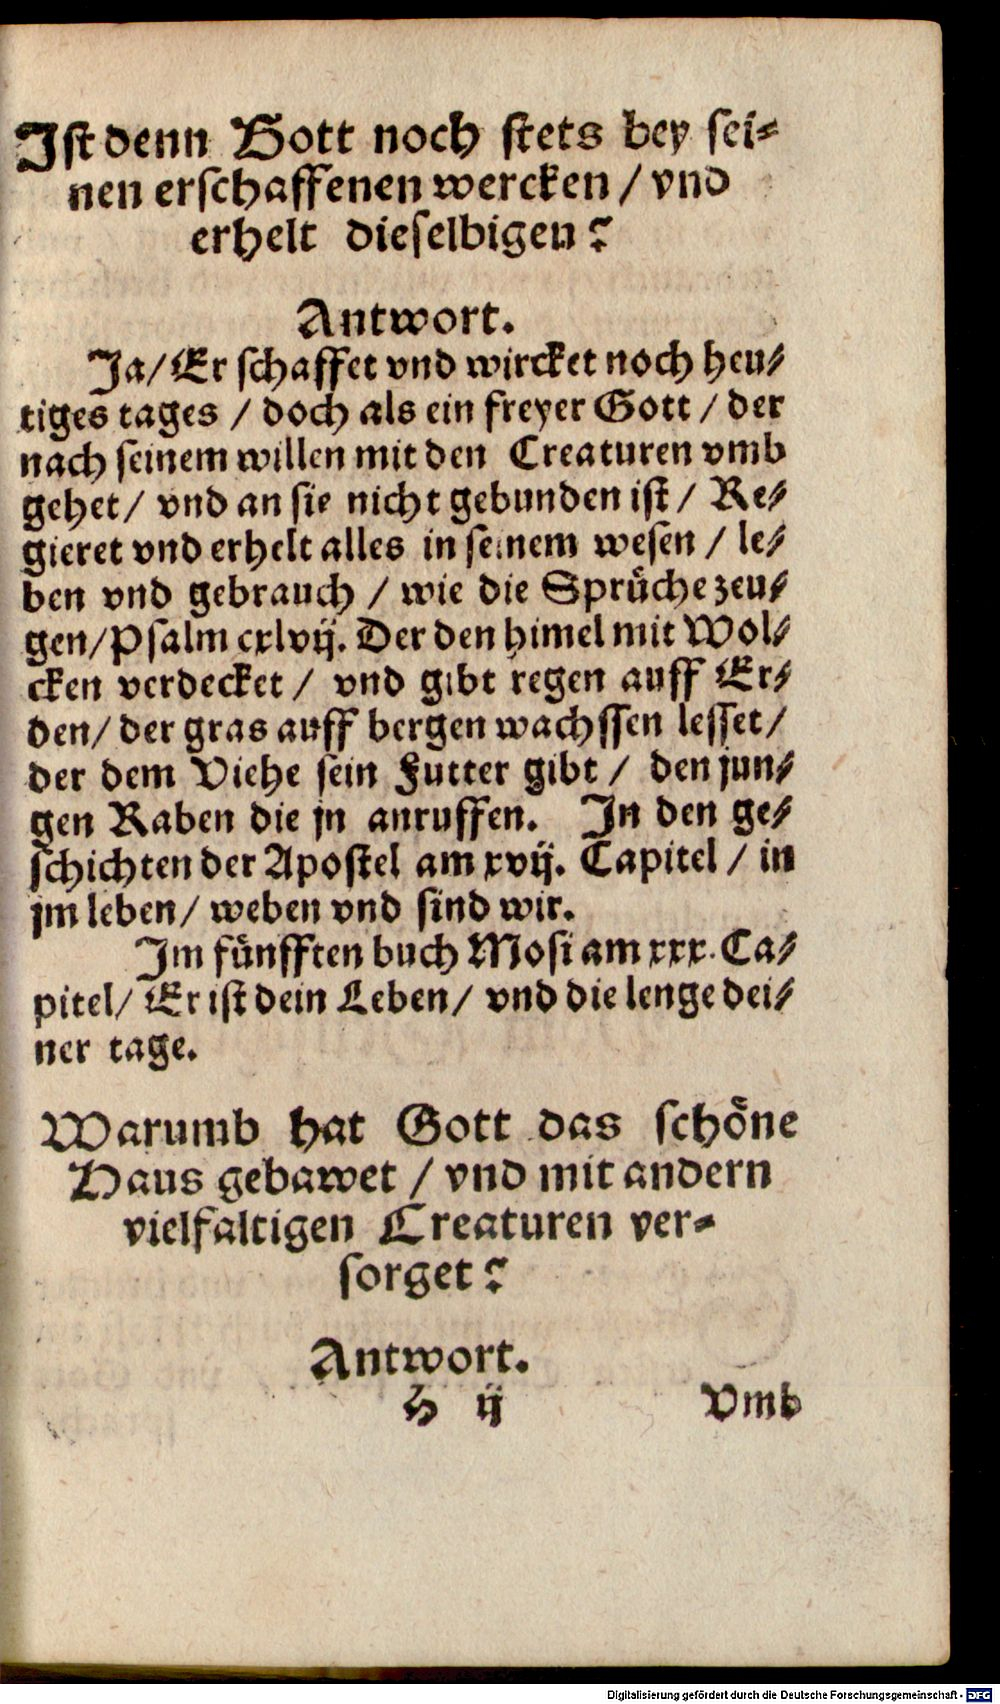 Ist denn Gott noch stets bey sei-
nen erschaffenen wercken / vnd
erhelt dieselbigen?
Antwort.
Ja/ Er schaffet vnd wircket noch heu-
tiges tages / doch als ein freyer Gott / der
nach seinem willen mit den Creaturen vmb
gehet / vnd an sie nicht gebunden ist / Re-
gieret vnd erhelt alles in seinem wesen / le-
ben vnd gebrauch / wie die Sprüche zeu-
gen/ Psalm cxlvij. Der den himel mit Wol-
cken verdecket / vnd gibt regen auff Er-
den/ der gras auff bergen wachssen lesset/
der dem Viehe sein Futter gibt / den jun-
gen Raben die jn anruffen. In den ge-
schichten der Apostel am xvij. Capitel / in
jm leben/ weben vnd sind wir.
Im fünfften buch Mosi am xxx. Ca-
pitel/ Er ist dein Leben/ vnd die lenge dei-
ner tage.
Warumb hat Gott das schöne
Haus gebawet / vnd mit andern
vielfaltigen Creaturen ver-
sorget?
Antwort.
H ij Vmb
Digitalisierung gefördert durch die Deutsche Forschungsgemeinschaft - DFG